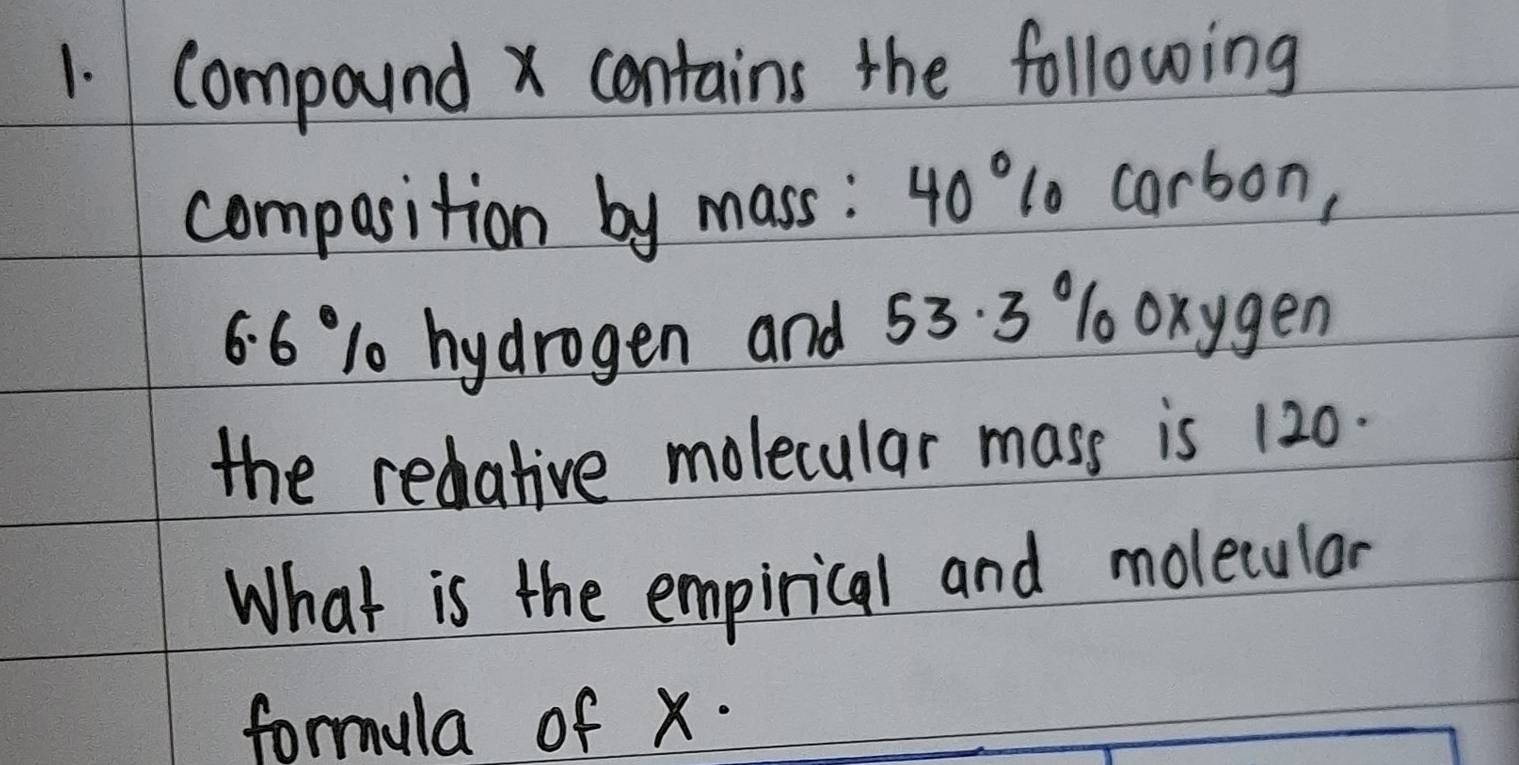 1. Compound x contains the following
composition by mass: 40% carbon,
6.6% hydrogen and 53.3% oxygen
the relative molecular mass is 120.
What is the empirical and molecular
formula of x.